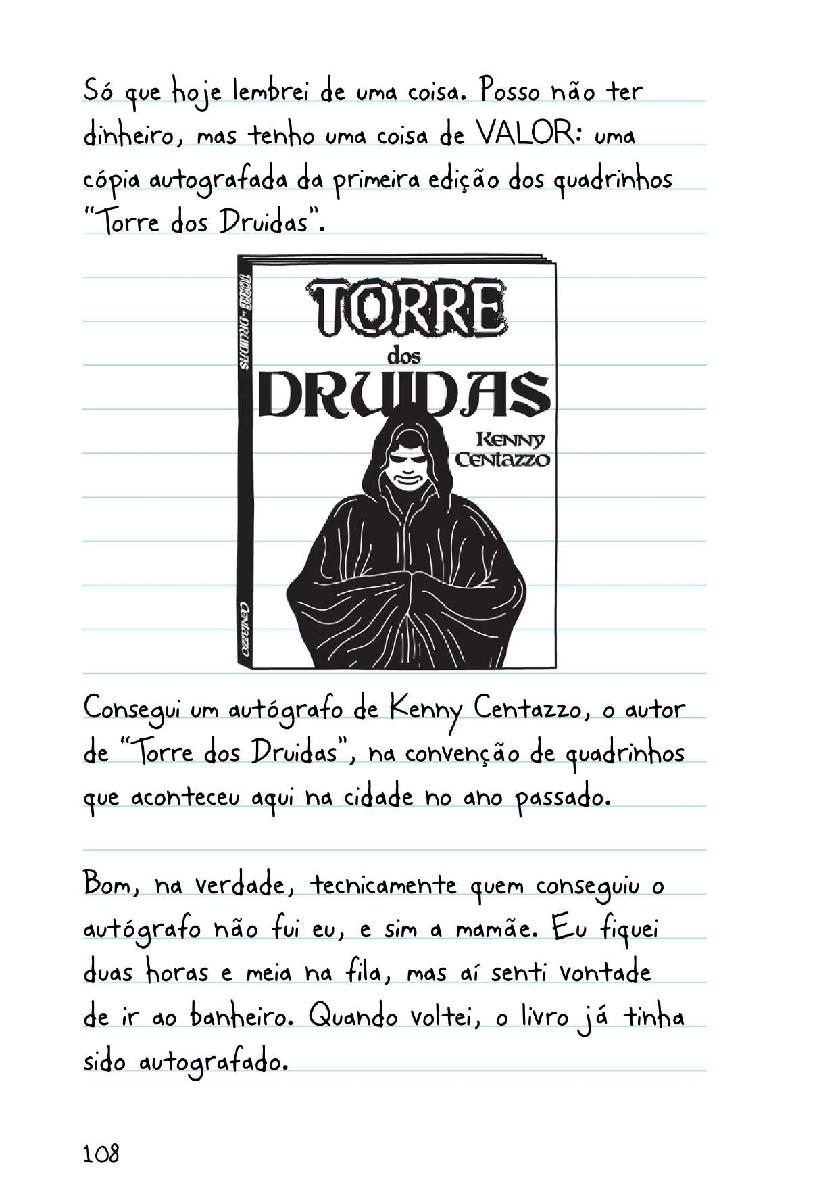 Só que hoje lembrei de uma coisa. Posso não ter
dinheiro, mas tenho uma coisa de VALOR: uma
cópia autografada da primeira edição dos quadrinhos
"Torre dos Druidas".
TORRE
dos
DRUIDAS
Kenny
Centazzo
TORRE-DRUIDAS
Centazzo
Consegui um autógrafo de Kenny Centazzo, o autor
de "Torre dos Druidas", na convenção de quadrinhos
que aconteceu aqui na cidade no ano passado.
Bom, na verdade, tecnicamente quem conseguiu o
autógrafo não fui eu, e sim a mamãe. Eu fiquei
duas horas e meia na fila, mas aí senti vontade
de ir ao banheiro. Quando voltei, o livro já tinha
sido autografado.
108